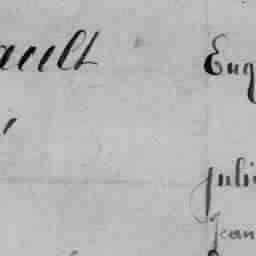 ault Eug
Juli
Jean